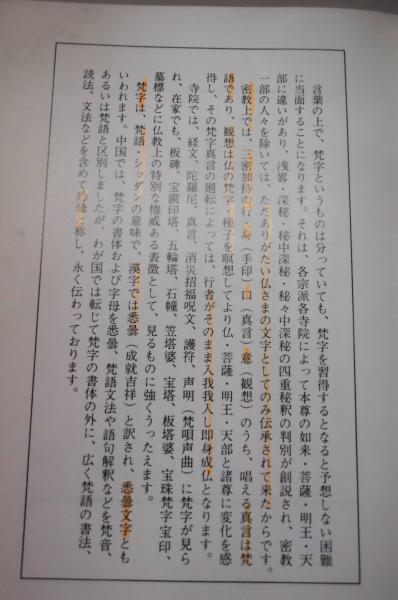 言葉の上で、梵字というものは分っていても、梵字を習得するとなると予想しない困難
に当面することになります。それは、各宗派各寺院によって本尊の如来・菩薩・明王・天
部に違いがあり、浅畧・深秘・秘中深秘・秘々中深秘の四重秘釈の判別が創説され、密教
一部の人々を除いては、ただありがたい仏さまの文字としてのみ伝承されて来たからです。
密教上では、三密加持の行・身（手印）口（真言）意（観想）のうち、唱える真言は梵
語であり、観想は仏の梵字・種子を瞑想してより仏・菩薩・明王・天部と諸尊に変化を感
得し、その梵字真言の廻転によっては、行者がそのまま入我我入し即身成仏となります。
寺院では、経文、陀羅尼、真言、消災招福呪文、護符、声明（梵唄声曲）に梵字が見ら
れ、在家でも、板碑、宝篋印塔、五輪塔、石幢、笠塔婆、宝塔、板塔婆、宝珠梵字宝印、
墓標などに仏教上の特別な権威ある表徴として、見るものに強くうったえます。
梵字は、梵語・シッダンの意味で、漢字では悉曇（成就吉祥）と訳され、悉曇文字とも
いわれます。中国では、梵字の書体および字母を悉曇、梵語文法や語句解釈などを梵音、
あるいは梵語と区別しましたが、わが国では転じて梵字の書体の外に、広く梵語の書法、
読法、文法などを含めて悉曇と称し、永く伝わっております。